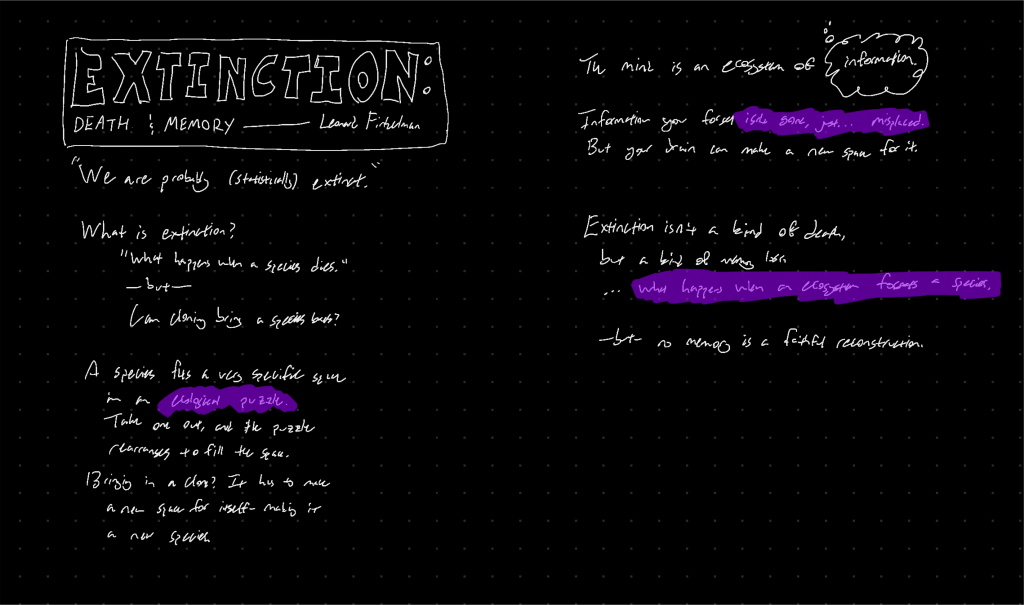 EXTINCTION:
DEATH & MEMORY — Leonard
"We are probably (statistically) extinct."
What is extinction?
"What happens when a species dies."
—but—
Can cloning bring a species back?
A species fills a very specific space
in an ecological puzzle.
Take one out, and the puzzle
rearranges to fill the space.
Bringing in a clone? It has to make
a new space for itself- making it
a new species
The mind is an ecosystem of information.
Information you forget isn't gone, just... misplaced.
But your brain can make a new space for it.
Extinction isn't a kind of death,
but a kind of memory loss
... what happens when an ecosystem forgets a species.
—but— no memory is a faithful reconstruction.